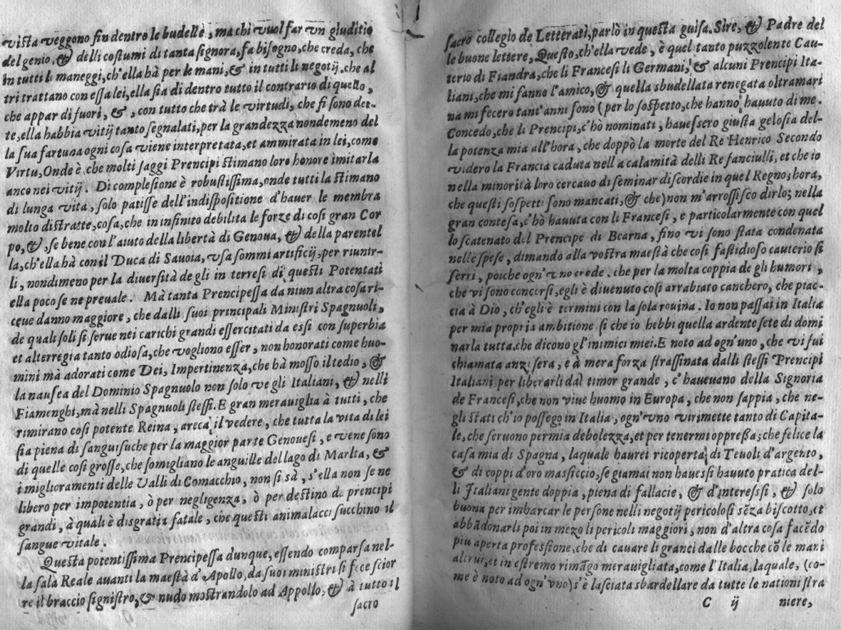 vista veggono fin dentro le budelle, ma chi vuol far vn giuditio
del genio, & delli costumi di tanta signora, fa bisogno, che creda, che
in tutti li maneggi, ch'ella hà per le mani, & in tutti li negotij, che al
tri trattano con essa lei, ella sia di dentro tutto il contrario di quello,
che appar di fuori, &, con tutto che trà le virtudi, che si sono det-
te, ella habbia vitij tanto segnalati, per la grandezza nondemeno del
la sua fartuna ogni cosa viene interpretata, et ammirata in lei, come
Virtu, Onde è che molti saggi Prencipi stimano loro honore imitarla
anco nei vitij. Di complesione è robustissima, onde tutti la stimano
di lunga vita, solo patisse dell'indispositione d'hauer le membra
molto distratte, cosa, che in infinito debilita le forze di cosi gran Cor
po, &, se bene con l'aiuto della libertà di Genoua, & della parentel
la, ch'ella hà con il Duca di Sauoia, vsa sommi artificij, per riunir-
li, nondimeno per la diuersità de gli in teressi di questi Potentati
ella poco se ne preuale. Mà tanta Prencipessa da niun altra cosa ri-
ceue danno maggiore, che dalli suoi principali Ministri Spagnuoli,
de quali soli si serue nei carichi grandi essercitati da essi con superbia
et alterregia tanto odiosa, che vogliono esser, non honorati come huo-
mini mà adorati come Dei, Impertinenza, che hà mosso il tedio, &
la nausea del Dominio Spagnuolo non solo ne gli Italiani, & nelli
Fiamenghi, mà nelli Spagnuoli stessi. E gran merauiglia à tutti, che
rimirano cosi potente Reina, arecca il vedere, che tutta la vita di lei
sia piena di sanguisuche per la maggior parte Genouesi, e vene sono
di quelle cosi grosse, che somigliano le anguille del lago di Marlta, &
i miglioramenti delle Valli di Comacchio, non si sà, s'ella non se ne
libero per impotentia, ò per negligenza, ò per destino de prencipi
grandi, à quali è disgratia fatale, che questi animalacci succhino il
sangue vitale.
Questa potentissima Prencipessa dunque, essendo comparsa nel-
la sala Reale auanti la maestà d'Apollo, da suoi ministri si fece scior
re il braccio signistro, & nudo mostrandolo ad Appollo, & à tutto il
sacro
sacro collegio de Letterati, parlò in questa guisa. Sire, & Padre del
le buone lettere, Questo, ch'ella vede, è quel tanto puzzolente Cau-
terio di Fiandra, che li Francesi li Germani, & alcuni Prencipi Ita-
liani, che mi fanno l'amico, & quella sbudellata renegata oltramari
na mi fecero tant'anni sono (per lo sospetto, che hanno hauuto di me.
Concedo, che li Prencipi, c'hò nominati, hauessero giusta gelosia del-
la potenza mia all'hora, che doppò la morte del Re Henrico Secondo
videro la Francia caduta nella calamità delli Re fanciulli, et che io
nella minorità loro cercauo di seminar discordie in quel Regno; hora,
che questi sospetti sono mancati, & che) non m'arrossisco dirlo; nella
gran contesa, c'hò hauuta con li Francesi, e particolarmente con quel
lo scatenato del Prencipe di Bearna, fino vi sono stata condenata
nelle spese, dimando alla vostra maestà che cosi fastidioso cauterio si
serri, poiche ogn'vno crede, che per la molta coppia de gli humori,
che vi sono concorsi, egli è diuenuto cosi arrabiato canchero, che piac-
cia à Dio, ch'egli è termini con la sola rouina. Io non passai in Italia
per mia propria ambitione, si che io hebbi quella ardente sete di domi
narla tutta, che dicono gl'inimici miei. E noto ad ogn'uno, che vi fui
chiamata anzi sera, e à mera forza strassinata dalli stessi Prencipi
Italiani per liberarli dal timor grande, c'haueuano della Signoria
de Francesi, che non viue huomo in Europa, che non sappia, che ne-
gli stati ch'io possego in Italia, ogn'vno vi rimette tanto di Capita-
le, che seruono per mia debolezza, et per tenermi oppressa; che felice la
casa mia di Spagna, laquale haurei ricoperta di Teuoli d'argento,
& di coppi d'oro massiccio, se giamai non hauessi hauuto pratica del-
li Italiani gente doppia, piena di fallacie, & d'interessi, & solo
buona per imbarcar le persone nelli negotij pericolosi sēza biscotto, et
abbādonarli poi in mezo li pericoli maggiori, non d'altra cosa facēdo
piu aperta professione, che di cauare li granci dalle bocche cō le mani
altrui, et in estremo rimāgo merauigliata, come l'Italia, laquale, (co-
me è noto ad ogn'vno) s'è lasciata sbardellare da tutte le nationi stra
C ij
niere,